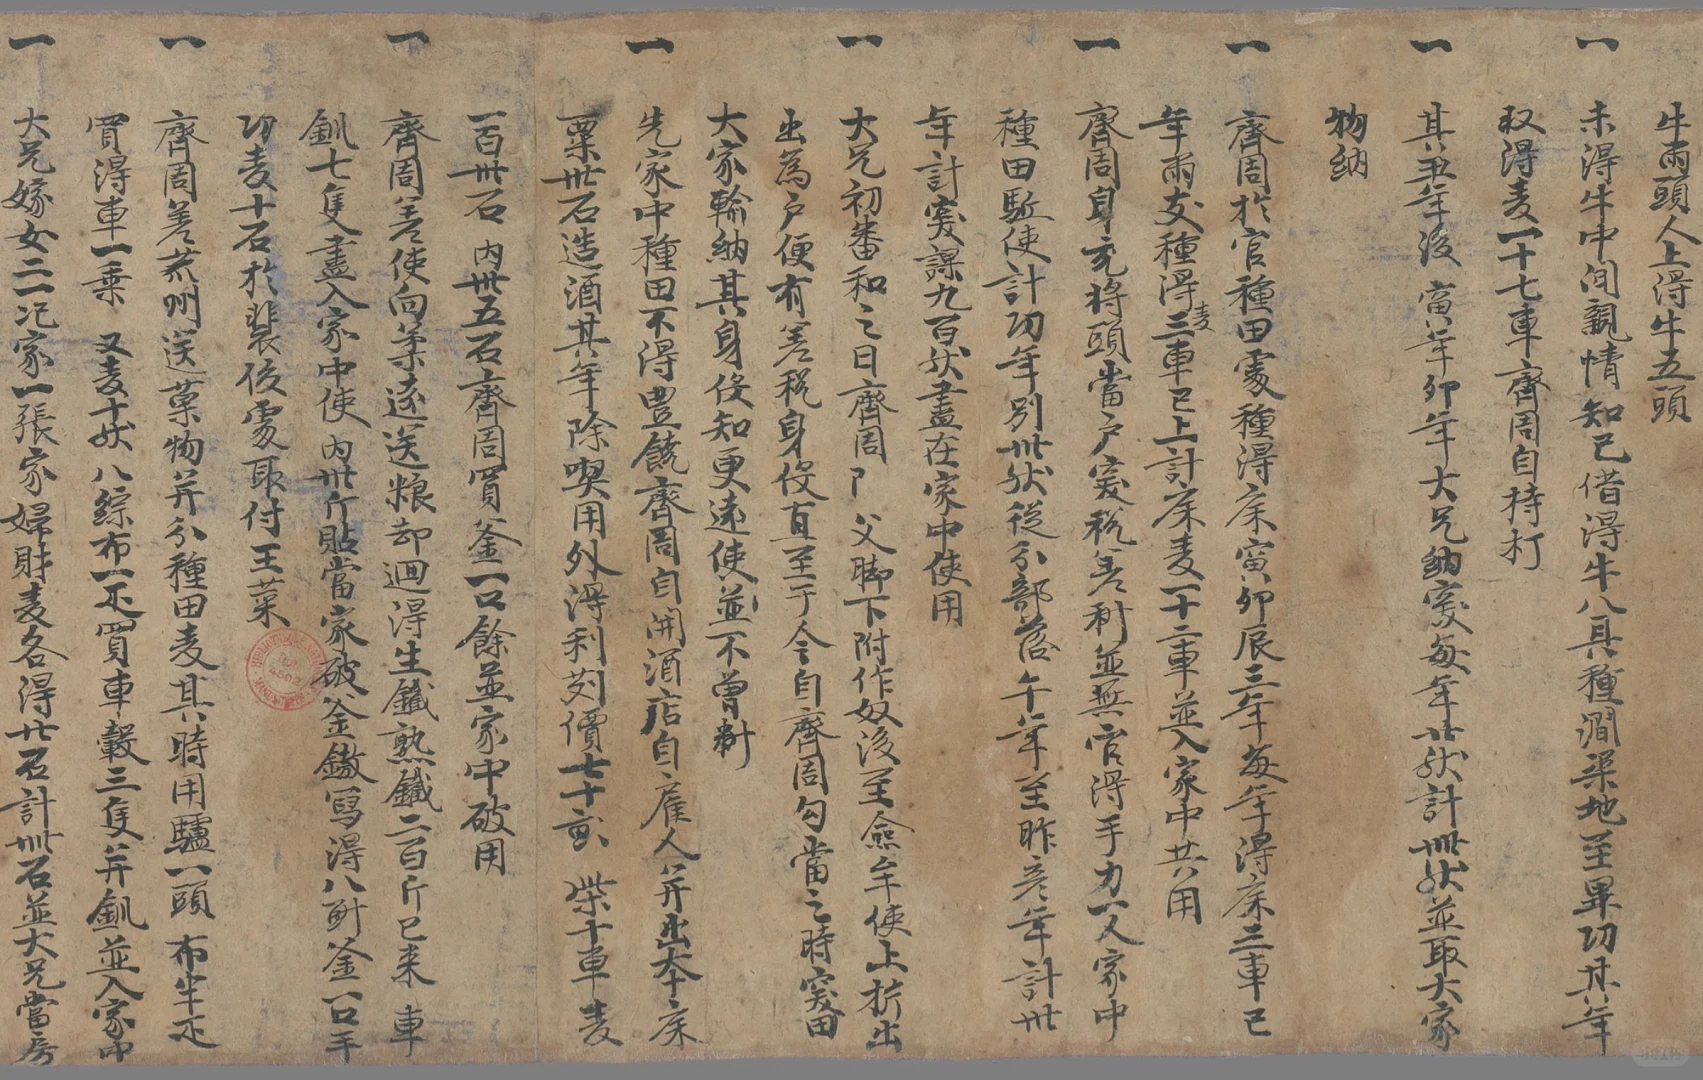 牛兩頭人上得牛五頭
一 未得牛中間親情知己借得牛八具種澗渠地至畢功其年
収得麦一十七車齊周自持打
一 其丑年後寅年卯年大兄納突每年廿馱計卌馱並取大家
物納
一 齊周於官種田處種得床寅卯辰三年每年得床三車巳
年兩支種得麦三車已上計床麦一十二車並入家中共用
一 齊周身充将頭當户突稅差科並無官得手力一人家中
種田駈使計功年別卅馱從分部落午年至昨亥年計卅
年計突課九百馱盡在家中使用
一 大兄初番和之日齊周阝父脚下附作奴後至僉牟使上析出
出為户便有差稅身役直至于今自齊周勾當之時突田
大家輸納其身役知更遠使並不曾料
一 先家中種田不得豊饒齊周自開酒店自雇人并出本床
粟卅石造酒其年除喫用外得利剗價七十畝 柴十車麦
一百卅石 内卅五石齊周買釜一口餘並家中破用
一 齊周差使向柔遠送粮却迴得生鐵熟鐵二百斤已来 車
釧七隻盡入家中使内卅斤貼當家破釜鏉寫得八斛釜一口手
功麦十石於裴俊處取付王菜
一 齊周差瓜州送菓物并分種田麦其時用驢一頭 布半疋
買得車一乗 又麦十馱八綜布一疋買車轂三隻并釧並入家中
一 大兄嫁女二一氾家一張家婦財麦各得廿石計卌石並大兄當房